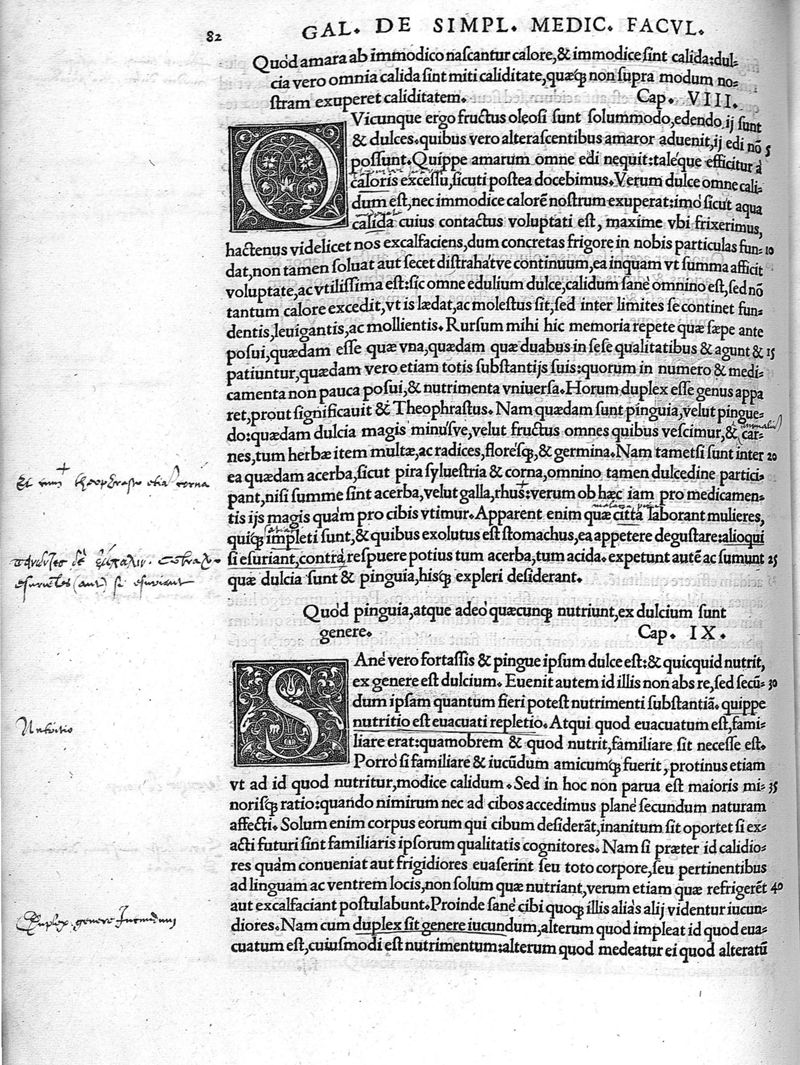 82 GAL. DE SIMPL. MEDIC. FACVL.
Quòd amara ab immodico nascantur calore,& immodice sint calida:dul-
cia vero omnia calida sint miti caliditate,quæq́; non supra modum no-
stram exuperet caliditatem. Cap. VIII.
QVicunque ergo fructus oleosi sunt solummodo,edendo,ij sunt
& dulces.quibus vero alterascentibus amaror aduenit,ij edi nō 5
possunt.Quippe amarum omne edi nequit:taleque efficitur à
caloris excessu,sicuti postea docebimus.Verum dulce omne cali-
dum est,nec immodice calorē nostrum exuperat:imò sicut aqua
calida cuius contactus voluptati est, maxime vbi frixerimus,
hactenus videlicet nos excalfaciens,dum concretas frigore in nobis particulas fun- 10
dat,non tamen soluat aut secet distrahatve continuum,ea inquam vt summa afficit
voluptate,ac vtilissima est:sic omne edulium dulce,calidum sanè omnino est,sed nō
tantum calore excedit,vt is lædat,ac molestus sit,sed inter limites se continet fun-
dentis,leuigantis,ac mollientis. Rursum mihi hic memoria repete quæ sæpe ante
posui,quædam esse quæ vna,quædam quæ duabus in sese qualitatibus & agunt & 15
patiuntur,quædam vero etiam totis substantijs suis:quorum in numero & medi-
camenta non pauca posui,& nutrimenta vniuersa.Horum duplex esse genus appa
ret,prout significauit & Theophrastus. Nam quædam sunt pinguia,velut pingue-
do:quædam dulcia magis minusve,velut fructus omnes quibus vescimur,& car-
animaliū
nes,tum herbæ item multæ,ac radices,floresq́;,& germina.Nam tametsi sunt inter 20
ea quædam acerba,sicut pira syluestria & corna,omnino tamen dulcedine partici-
pant,nisi summe sint acerba,velut galla,rhus:verum ob hæc iam pro medicamen-
tis ijs magis quàm pro cibis vtimur. Apparent enim quæ citta laborant mulieres,
quiq́; impleti sunt,& quibus exolutus est stomachus,ea appetere degustare:alioqui
si esuriant,contrà respuere potius tum acerba,tum acida. expetunt autē ac sumunt 25
quæ dulcia sunt & pinguia,hisq́; expleri desiderant.
Quòd pinguia,atque adeo quæcunq; nutriunt,ex dulcium sunt
genere. Cap. IX.
SAnè vero fortassis & pingue ipsum dulce est:& quicquid nutrit,
ex genere est dulcium. Euenit autem id illis non abs re,sed secū- 30
dum ipsam quantum fieri potest nutrimenti substantiā. quippe
nutritio est euacuati repletio. Atqui quod euacuatum est,fami-
liare erat:quamobrem & quod nutrit,familiare sit necesse est.
Porrò si familiare & iucūdum amicumq́; fuerit, protinus etiam
vt ad id quod nutritur,modice calidum. Sed in hoc non parua est maioris mi- 35
norisq́; ratio:quando nimirum nec ad cibos accedimus planè secundum naturam
affecti. Solum enim corpus eorum qui cibum desiderāt,inanitum sit oportet si ex-
acti futuri sint familiaris ipsorum qualitatis cognitores. Nam si præter id calidio-
res quàm conueniat aut frigidiores euaserint seu toto corpore,seu pertinentibus
ad linguam ac ventrem locis,non solum quæ nutriant,verum etiam quæ refrigerēt 40
aut excalfaciant postulabunt.Proinde sanè cibi quoq; illis alias alij videntur iucun-
diores.Nam cum duplex sit genere iucundum,alterum quod impleat id quod eua-
cuatum est,cuiusmodi est nutrimentum:alterum quod medeatur ei quod alteratū
Nutritio
Duplex genere Iucundum